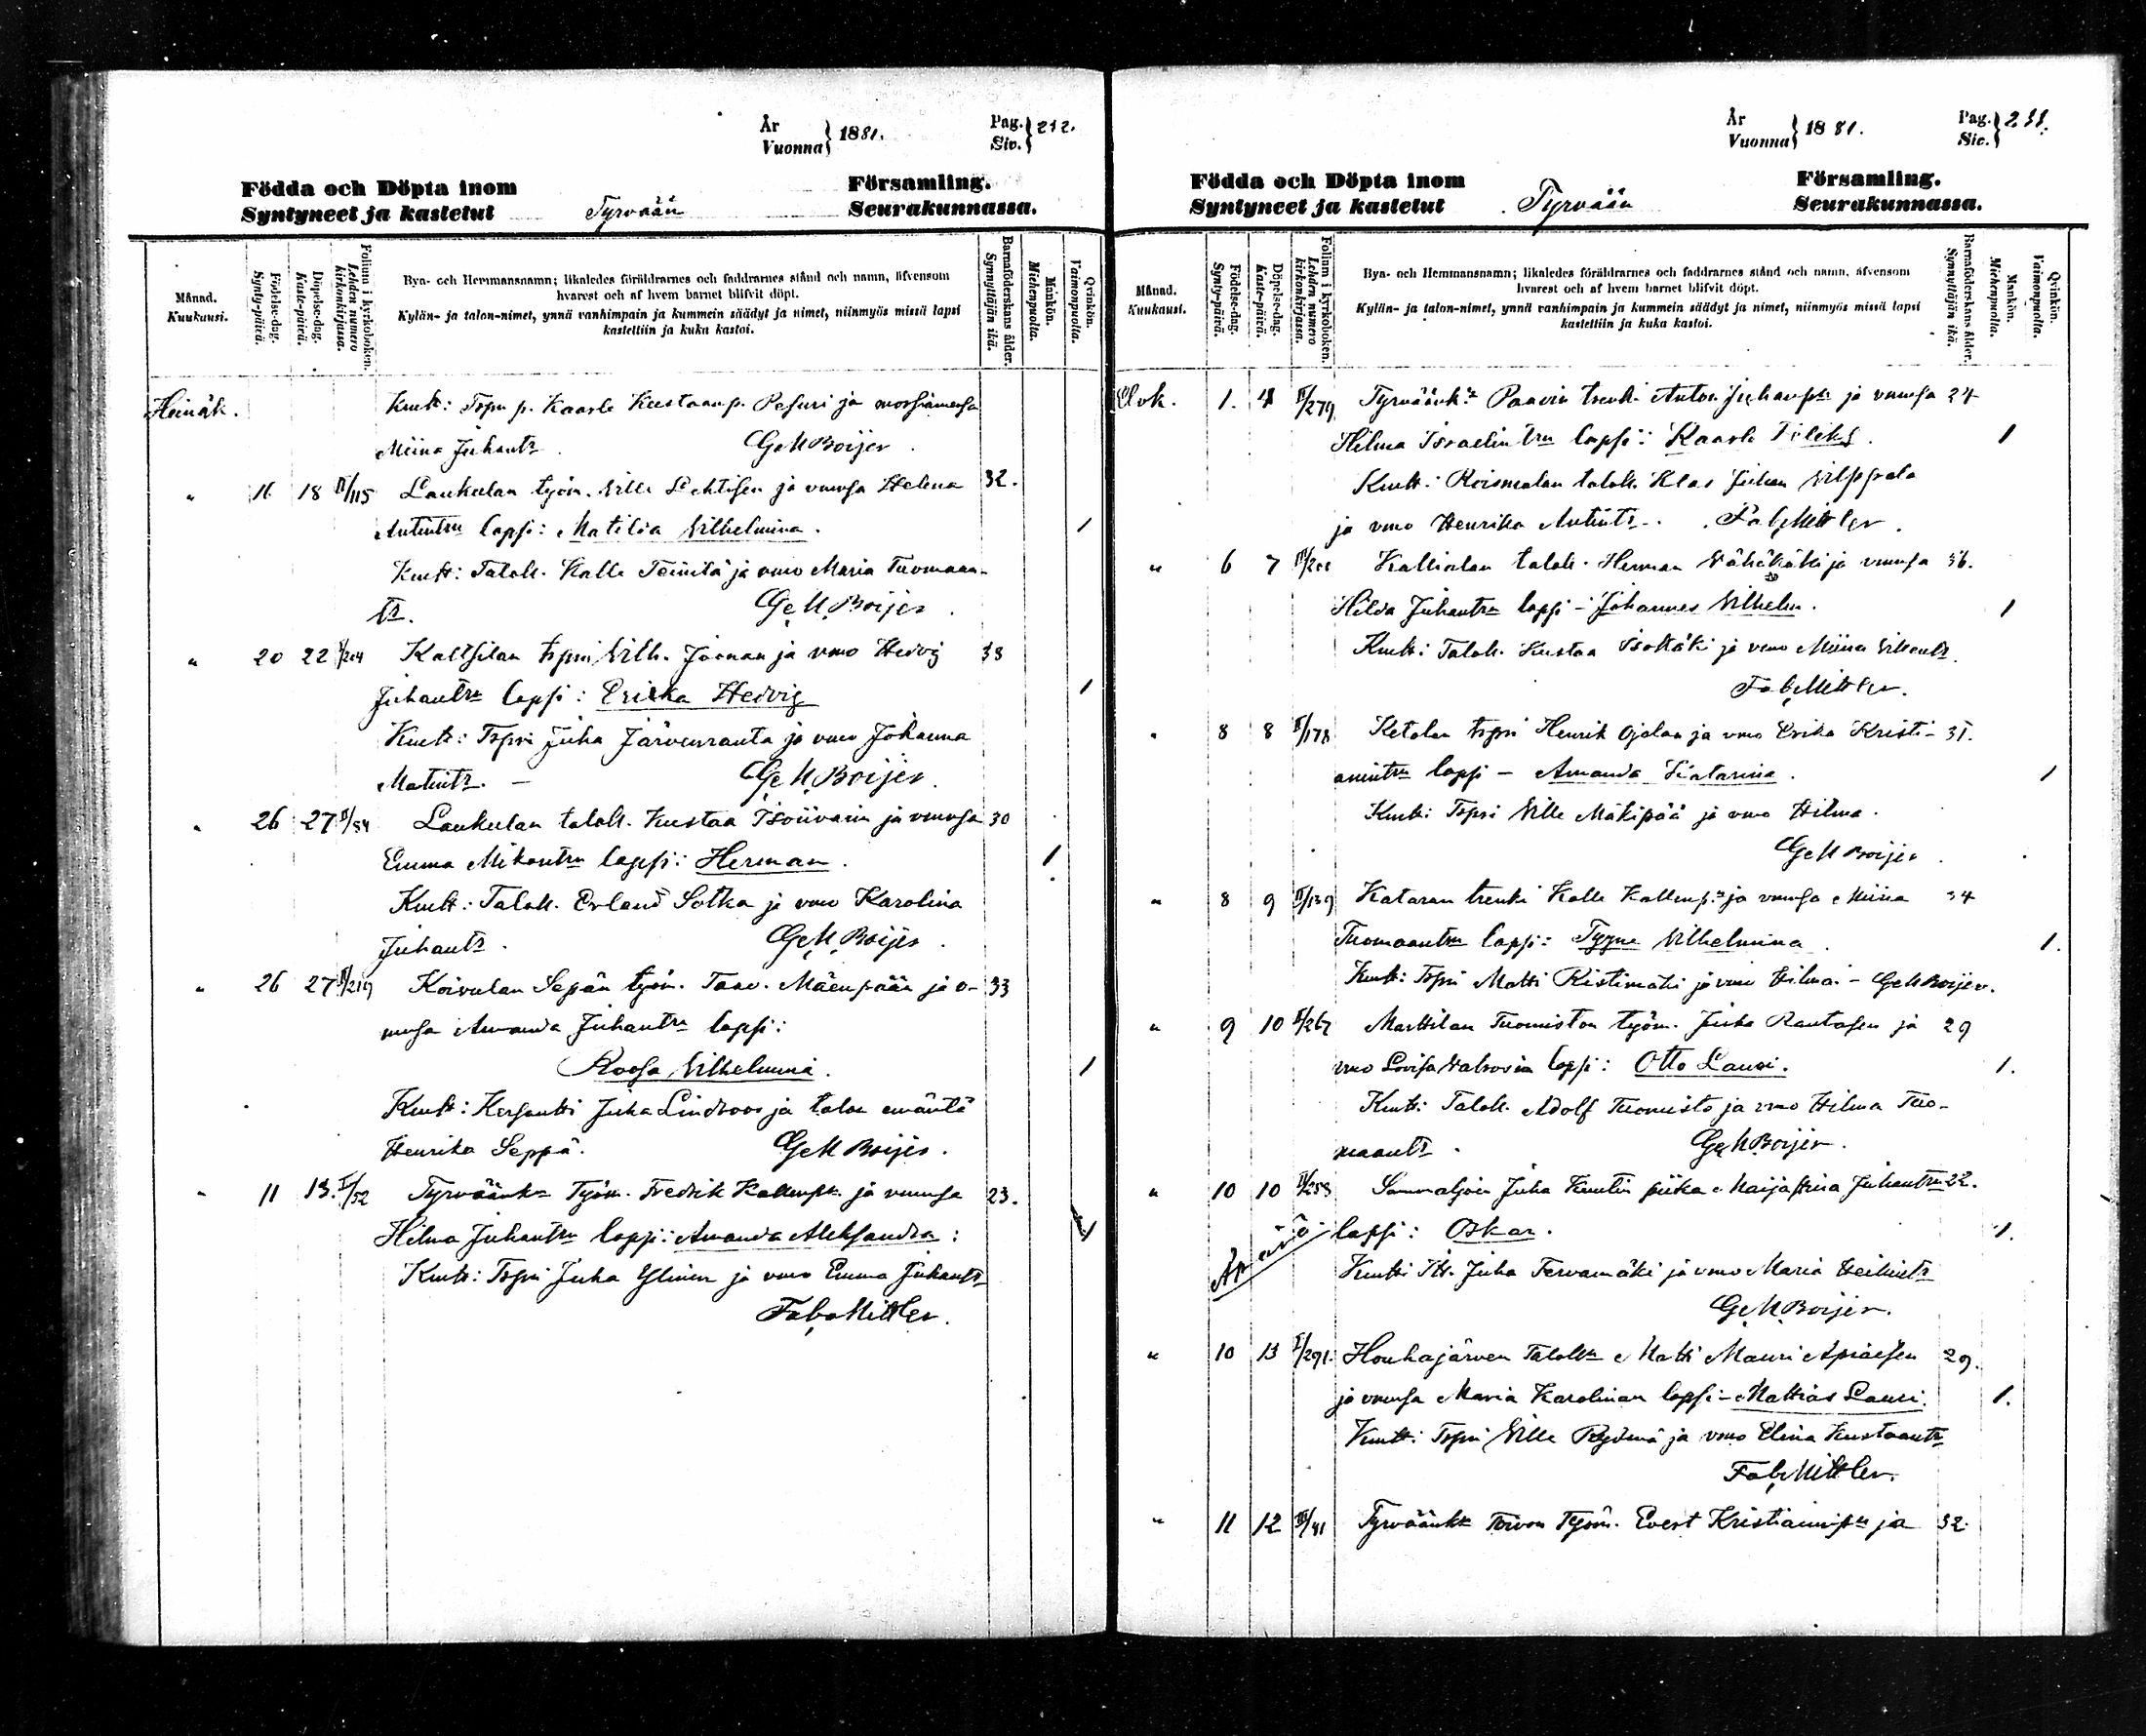 År
Vuonna} 1881. Pag.
Siv.} 232.
Födda och Döpta inom Församling.
Syntyneet ja kastetut Tyrvään Seurakunnassa.
Månad.
Kuukausi.
Födelse-dag.
Synty-päivä.
Döpelse-dag.
Kaste-päivä.
Folium i kyrkoboken.
Lehden numero
kirkonkirjassa.
Bya- och Hemmansnamn; likaledes föräldrarnes och faddrarnes stånd och namn, äfvensom
hvarest och af hvem barnet blifvit döpt.
Kylän- ja talon-nimet, ynnä vanhimpain ja kummein säädyt ja nimet, niinmyös missä lapsi
kastettiin ja kuka kastoi.
Barnaföderskans ålder.
Synnyttäjän ikä.
Mankön.
Miehenpuolta.
Qvinkön.
Vaimonpuolta.
Heinäk. Kmt: Tspn p. Kaarle Kustaanp. Pesuri ja morsiamensa
Miina Juhantr. GeMBoijer.
" 16 18 II/115 Laukulan työm. Ville Lehtisen ja vmnsa Helena 32.
Antintrn lapsi: Matilda Vilhelmina. 1
Kmt: Taloll. Kalle Teinilä ja vmo Maria Tuomaan-
tr. GeMBoijer.
" 20 22 /204 Kaltsilan tspri Vilh. Joonan ja vmo Hedvig 38
Juhantrn lapsi: Erika Hedvig 1
Kmt: Tspri Juha Järvenranta ja vmo Johanna
Matintr. - GeMBoijer.
" 26 27 II/54 Laukulan taloll. Kustaa Isoiivarin ja vmnsa 30
Emma Mikontrn lapsi: Herman. 1
Kmt: Taloll. Erland Sotka ja vmo Karolina
Juhantr. GeMBoijer.
" 26 27 II/219 Koivulan Sepän työm. Taav. Mäenpään ja v- 33
mnsa Amanda Juhantrn lapsi:
Roosa Vilhelmina. 1
Kmt: Kersantti Juha Lindroos ja talon emäntä
Henrika Seppä. GeMBoijer.
" 11 13. I/52 Tyrväänkn Työm. Fredrik Kallenpn ja vmnsa 23.
Hilma Juhantrn lapsi: Amanda Aleksandra: 1
Kmt: Tspri Juha Ylinen ja vmo Emma Juhantr
Fab. Mittler.
År
Vuonna} 1881. Pag.
Siv.} 233.
Födda och Döpta inom Församling.
Syntyneet ja kastetut Tyrvään Seurakunnassa.
Månad.
Kuukausi.
Födelse-dag.
Synty-päivä.
Döpelse-dag.
Kaste-päivä.
Folium i kyrkoboken.
Lehden numero
kirkonkirjassa.
Bya- och Hemmansnamn; likaledes föräldrarnes och faddrarnes stånd och namn, äfvensom
hvarest och af hvem barnet blifvit döpt.
Kylän- ja talon-nimet, ynnä vanhimpain ja kummein säädyt ja nimet, niinmyös missä lapsi
kastettiin ja kuka kastoi.
Barnaföderskans ålder.
Synnyttäjän ikä.
Mankön.
Miehenpuolta.
Qvinkön.
Vaimonpuolta.
Elok. 1. 4 II/279 Tyrväänkn Paavin trenk. Anton Juhanpn ja vmnsa 24
Hilma Israelintrn lapsi: Kaarle 1
Kmt: Roismalan taloll. Klas Juhan
ja vmo Henrika Antintr. Fab. Mittler.
" 6 7 Kallialan taloll. Herman Vähäkäki ja vmnsa 36.
Hilda Juhantrn lapsi - Johannes Vilhelm. 1
Kmt: Taloll. Kustaa Isokäki ja vmo Miina
Fab. Mittler.
" 8 8 II/178 Ketolan tspri Henrik Ojalan ja vmo Erika Kristi- 31.
anintrn lapsi - Amanda Katarina. 1
Kmt: Tspri Ville Mäkipää ja vmo Hilma.
GeMBoijer.
" 8 9 II/139 Kataran trenki Kalle Kallenpn ja vmnsa Miina 34
Tuomaantrn lapsi: Tyyne Vilhelmina. 1.
Kmt: Tspri Matti Ristimäki ja vmo Hilma. - GeMBoijer.
" 9 10 II/267 Marttilan Tuomiston työm. Juha Rantasen ja 29
vmo Lovisa lapsi: Otto Lauri. 1.
Kmt: Taloll. Adolf Tuomisto ja vmo Hilma Tuo-
maantr. GeMBoijer.
" 10 10 II/253 Sammaljoen Juha Knutin piika Maijastiina Juhantrn 22.
Äpärä lapsi: Oskar. 1.
Kmt: Itl. Juha Tervamäki ja vmo Maria Heikintr
GeMBoijer.
" 10 13 I/291. Houhajärven Talolln Matti Mauri Apiaisen 29.
ja vmnsa Maria Karolinan lapsi - Mattias Lauri. 1.
Kmt: Tspri Ville Rydmä ja vmo Elina Kustaantr
Fab. Mittler.
" 11 12 III/41 Tyrväänkn Työm. Evert Kristianinpn ja 32.